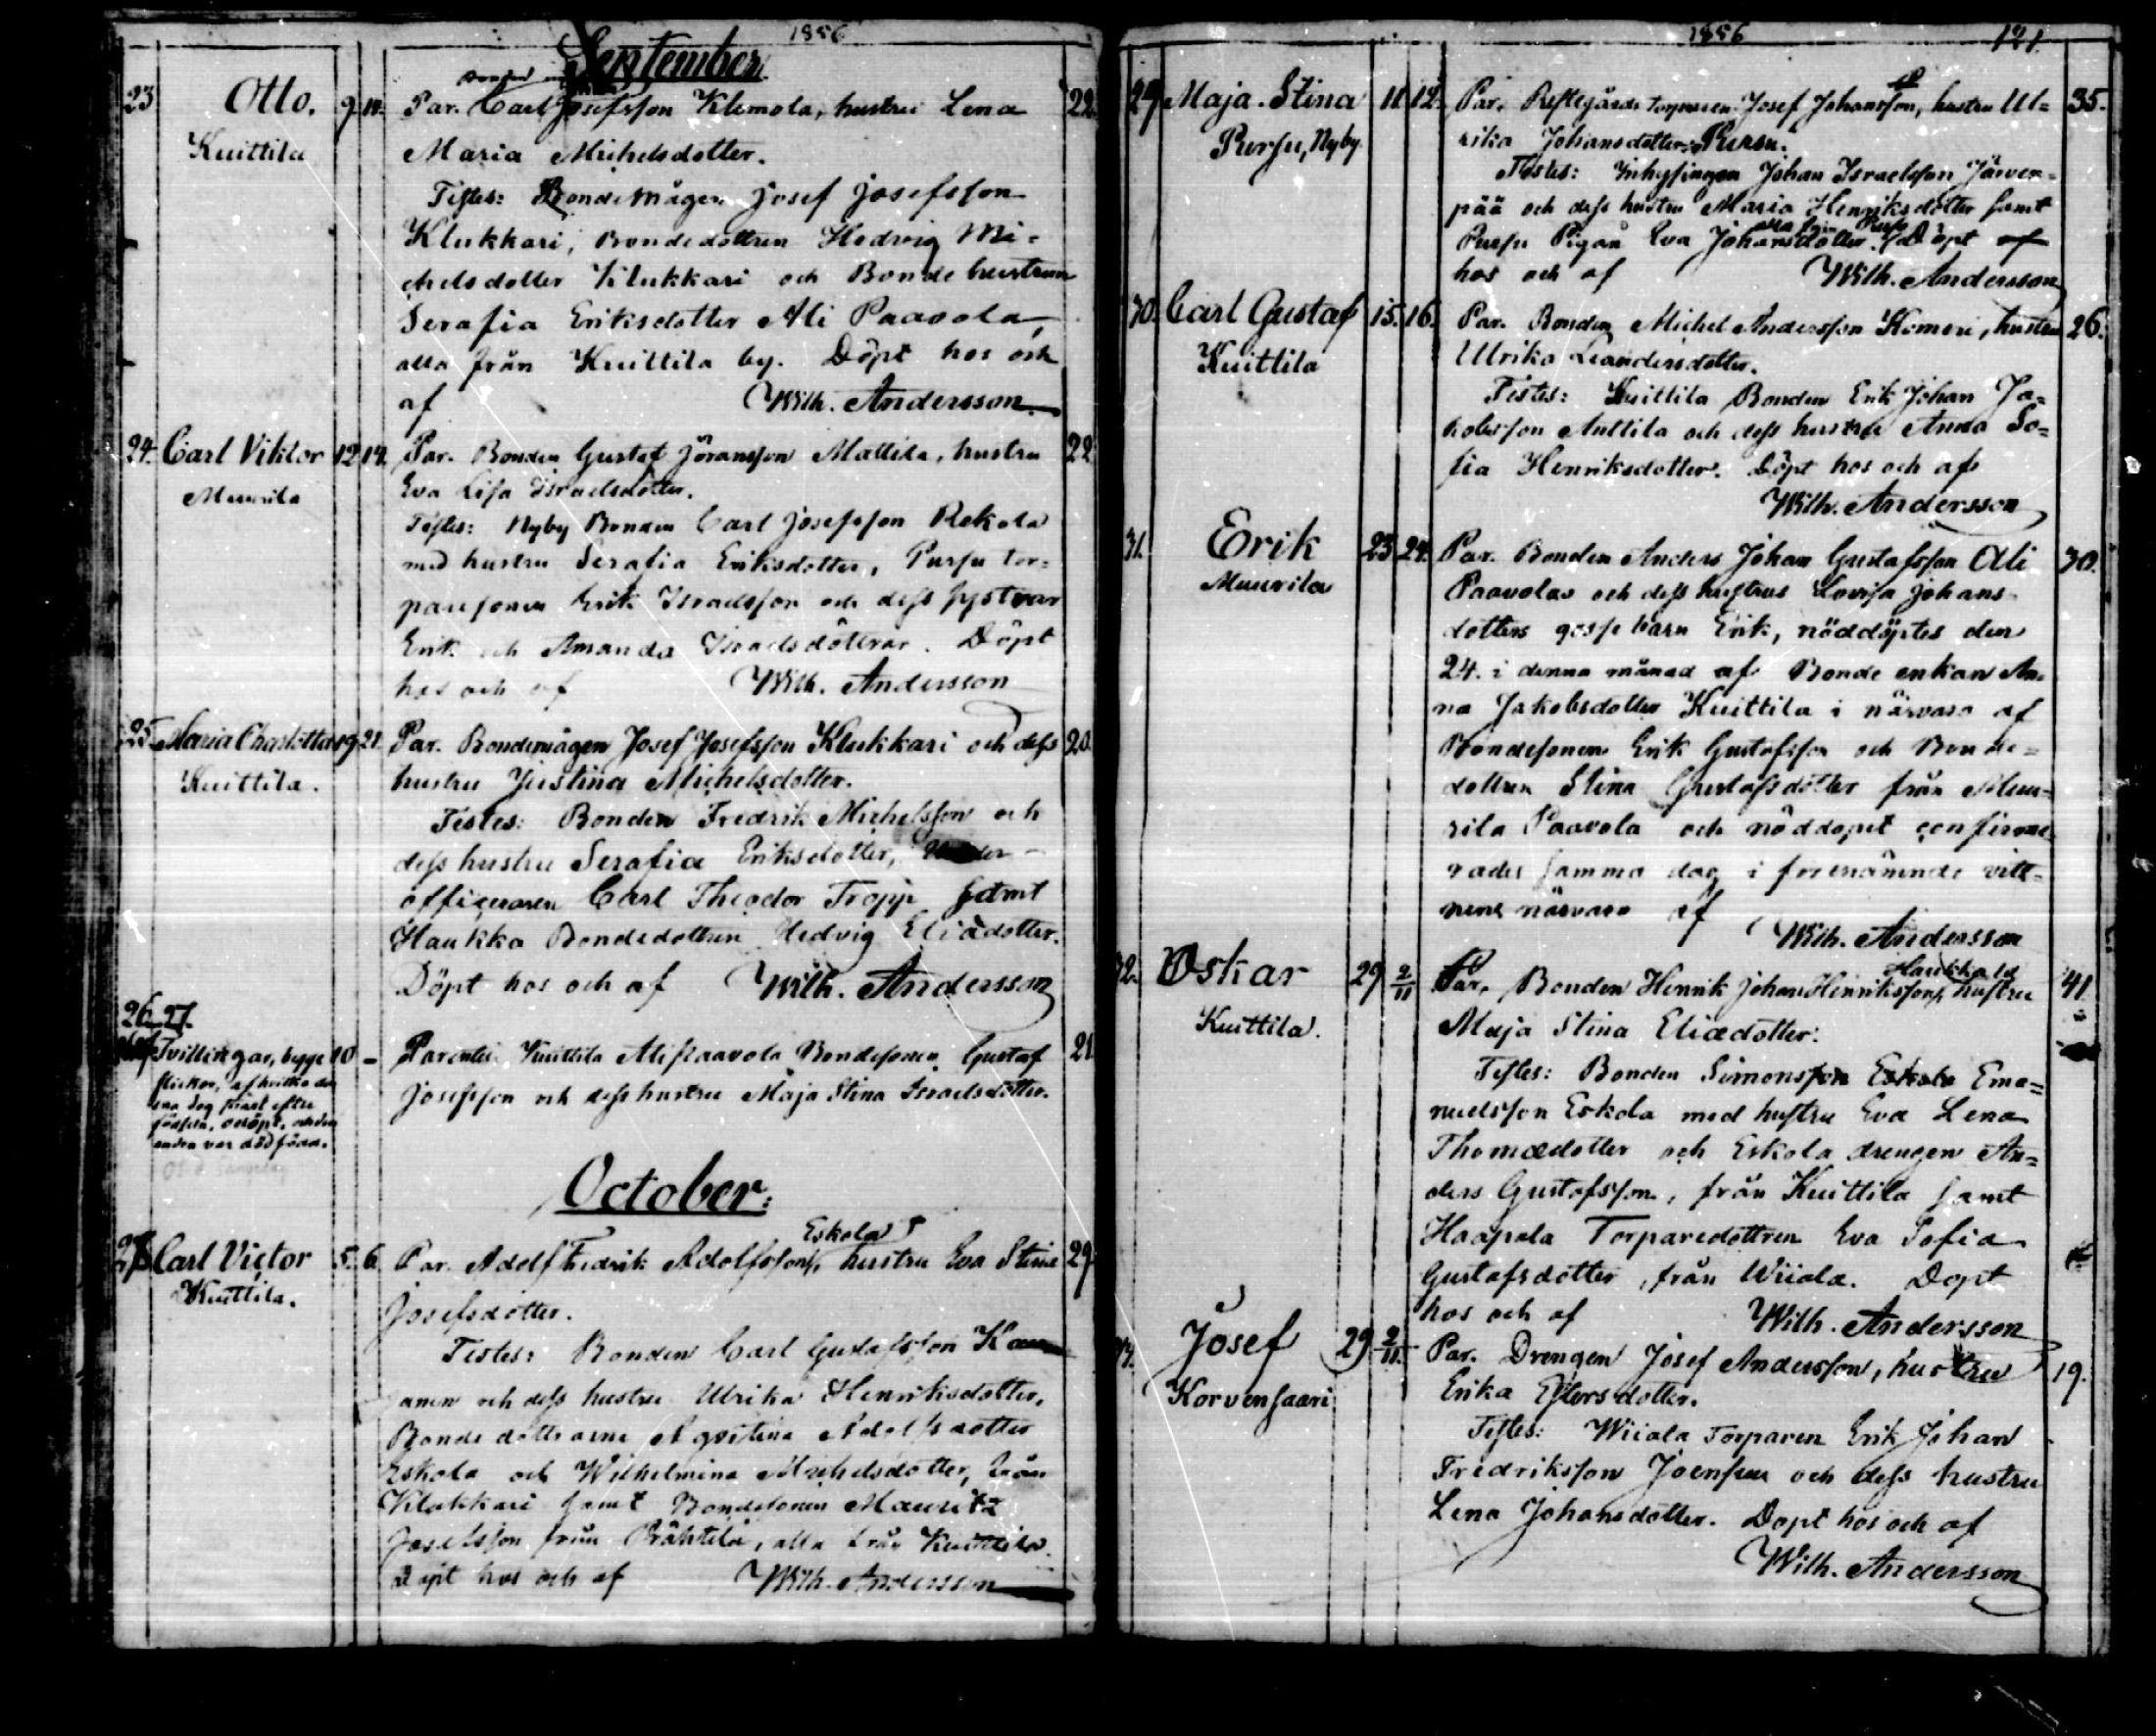 1856
September
23 Otto. 9 14. Par. Carl Josefsson Klemola, hustru Lena 22.
Kuittila Maria Michelsdotter.
Testes: Bondemågen Josef Josefsson
Klukkari, Bondedottren Hedvig Mi-
chelsdotter Klukkari och Bonde hustrun
Serafia Eriksdotter Ali Paavola,
alla från Kuittila by. Döpt hos och
af Wilh. Andersson
24. Carl Viktor 12 14. Par. Bonden Gustaf Göransson Mattila, hustru 22
Muurila Eva Lisa Israelsdotter.
Testes: Nyby Bonden Carl Josefsson Rekola
med hustru Serafia Eriksdotter, Pursu tor-
paresonen Erik Israelsson och dess systrar
Erik och Amanda Israelsdöttrar. Döpt
hos och af Wilh. Andersson
25. Maria Charlotta 19 21. Par. Bondemågen Josef Josefsson Klukkari och dess 20.
Kuittila. hustru Justina Michelsdotter.
Testes: Bonden Fredrik Michelsson och
dess hustru Serafia Eriksdotter, Under-
officeraren Carl Theodor Tropp samt
Haukka Bondedottren Hedvig Eliædotter.
Döpt hos och af Wilh. Andersson
26. 27.
Tvillingar, begge 10 - Parentes Kuittila Alipaavola Bondesonen Gustaf 21
flickor, af hvilka den Josefsson och dess hustru Maja Stina Israelsdotter.
ena dog straxt efter
födseln, odöpt, och den
andra var dödfödd.
October:
28 Carl Victor 5. 6. Par. Adolf Fredrik Adolfsson Eskola, hustru Eva Stina 29.
Kuittila. Josefsdotter.
Testes: Bonden Carl Gustafsson
och dess hustru Ulrika Henriksdotter,
Bonde döttrarne Agustina Adolfsdotter
Eskola och Wilhelmina Michelsdotter, från
Klukkari samt Bondesonen Mauritz
Josefsson från Prähtilä, alla från Kuittila.
Döpt hos och af Wilh. Andersson
1856 121
29 Maja Stina 11. 12. Par. Prestegårds Torparen Josef Johansson, hustru Ul- 35.
Pursu, Nyby rika Johansdotter Pursu.
Testes: Inhysingen Johan Israelsson Järven-
pää och dess hustru Maria Henriksdotter samt
Pursu Pigan Eva Johansdotter. Döpt
hos och af Wilh. Andersson
30. Carl Gustaf 15. 16. Par. Bonden Michel Andersson Komeri, hustru 26.
Kuittila Ulrika Leandersdotter.
Testes: Kuittila Bonden Erik Johan Ja-
kobsson Anttila och dess hustru Anna So-
fia Henriksdotter. Döpt hos och af
Wilh. Andersson
31. Erik 23 24. Par. Bonden Anders Johan Gustafsson Ali 30.
Muurila Paavolas och dess hustrus Lovisa Johans-
dotters gosse barn Erik, nöddöptes den
24. i denna månad af Bonde enkan An-
na Jakobsdotter Kuittila i närvaro af
Bondesonen Erik Gustafsson och Bonde-
dottren Stina Gustafsdotter från Muu-
rila Paavola och nöddopet confirme-
rades samma dag i förenämnde vitt-
nens närvaro af
Wilh. Andersson
32. Oskar 29 2/11 Par. Bonden Henrik Johan Henriksson Haukka, hustru 41
Kuittila. Maja Stina Eliædotter.
Testes: Bonden Simonsson Eskola Ema-
nuelsson Eskola med hustru Eva Lena
Thomædotter och Eskola drengen An-
ders Gustafsson, från Kuittila samt
Haapala Torparedottren Eva Sofia
Gustafsdotter, från Wiiala. Döpt
hos och af Wilh. Andersson
Josef 29 2/11. Par. Drengen Josef Andersson, hustru 19.
Korvensaari Erika Eflorsdotter.
Testes: Wiiala Torparen Erik Johan
Fredriksson Joensuu och dess hustru
Lena Johansdotter. Döpt hos och af
Wilh. Andersson